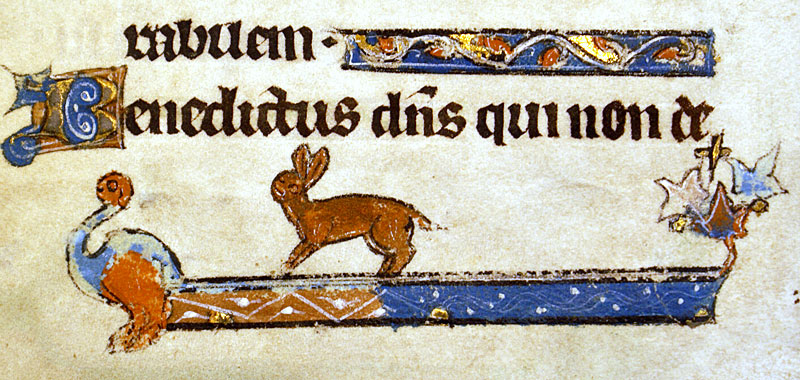 rabilem.
Benedictus dn̄s qui non de